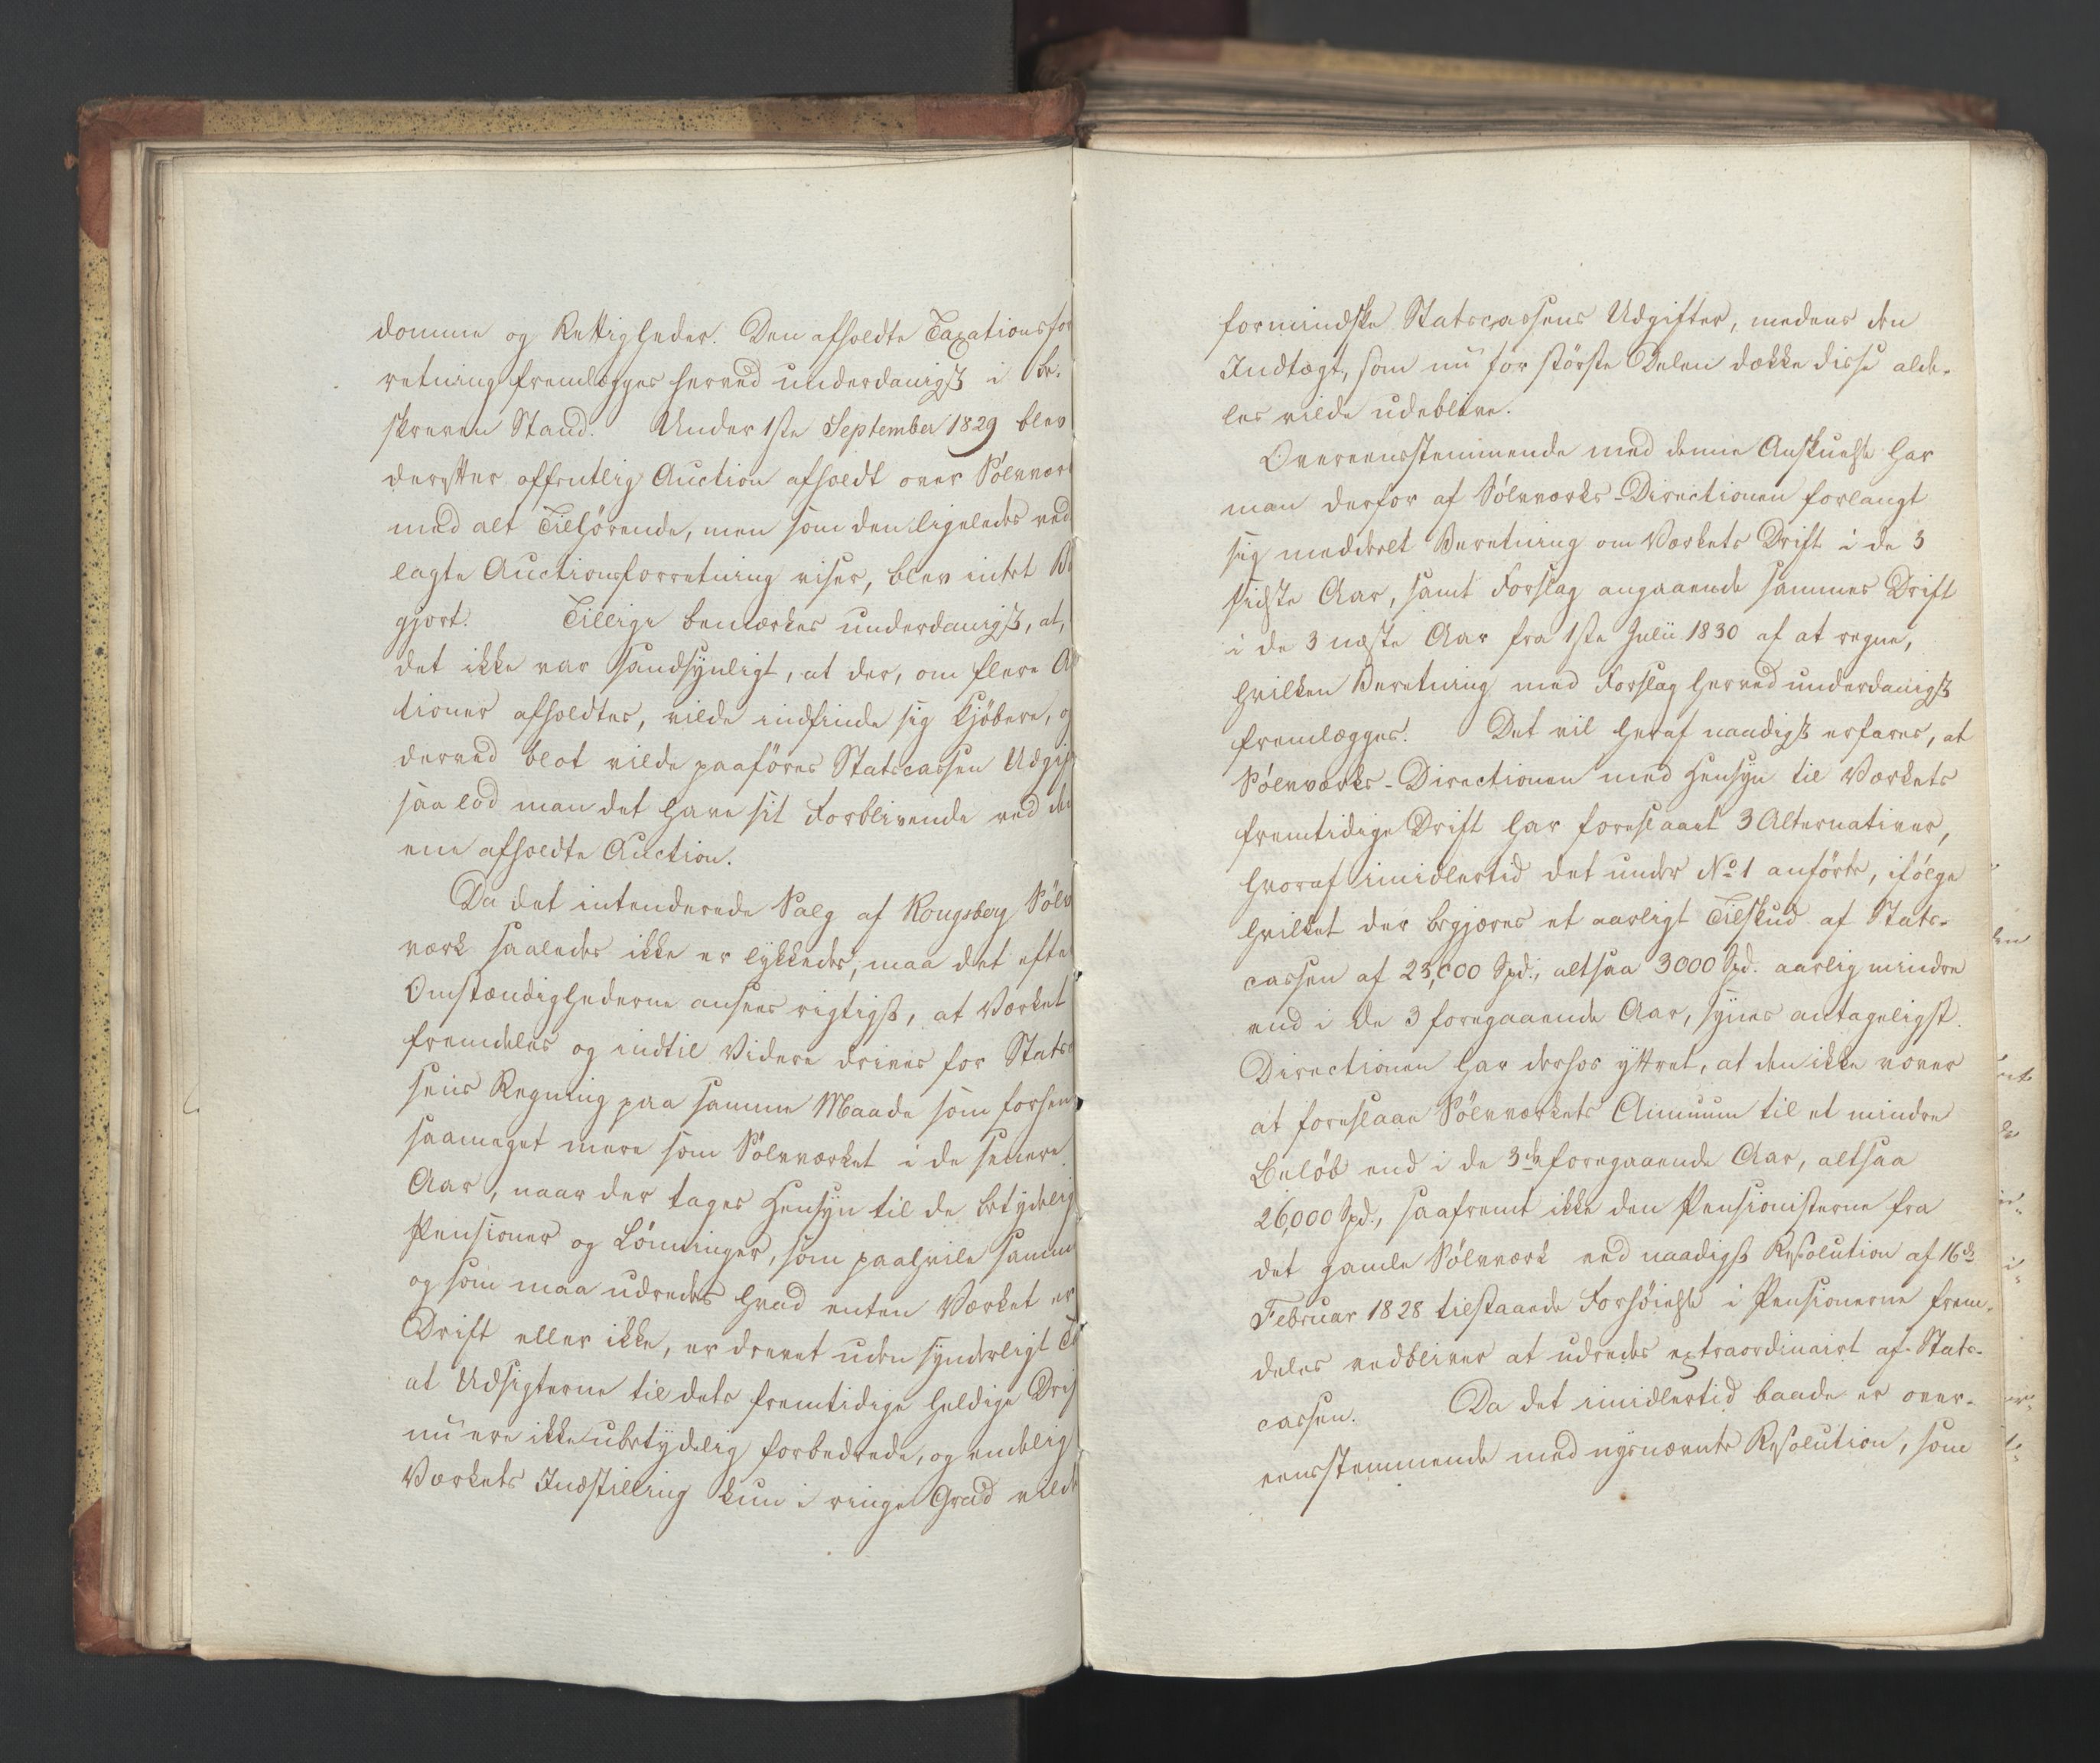 domme og Rettigheder. Den afholdte Taxationsfor
retning fremlægges herved underdanigst i be-
skreven Stand. Under 1ste September 1829 blev
derefter offentlig Auction afholdt over Sølvværk
med alt Tilhörende, men som den ligeledes ved
lagte Auctionsforretning viser, blev intet B
gjort. Tillige bemærkes underdanigst, at,
det ikke var sandsynligt, at der, om flere A
tioner afholdtes, vilde indfinde sig Kjöbere, og
derved blot vilde paaföres Statscassen Udgif
saa lod man det have sit Forblivende ved den
ene afholdte Auction.
Da det intenderede Salg af Kongsberg Sölv
værk saaledes ikke er lykkedes, maa det efte
Omstændighederne ansees rigtigst, at Værket
fremdeles og indtil Videre drives for Stats
sens Regning paa samme Maade som forhen
saameget mere som Sølvværket i de senere
Aar, naar der tages Hensyn til de betydelig
Pensioner og Lønninger, som paahvile samm
og som maa udredes hvad enten Værket er
Drift eller ikke, er drevet uden synderligt T
at Udsigterne til dets fremtidige heldige Drif
nu ere ikke ubetydelig forbedrede, og endelig
Værkets Indstilling kun i ringe Grad vilde
formindske Statscassens Udgifter, medens den
Indtægt, som nu for störste Delen dække disse alde-
les vilde udeblive.
Overeensstemmende med denne Anskuelse har
man derfor af Sölvværks-Directionen forlangt
sig meddeelt Beretning om Værkets Drift i de 3
sidste Aar, samt Forslag angaaende sammes Drift
i de 3 næste Aar fra 1ste Julii 1830 af at regne,
hvilken Beretning med Forslag herved underdanigst
fremlægges. Det vil heraf naadigst erfares, at
Sølvværks-Directionen med Hensyn til Værkets
fremtidige Drift har foreslaaet 3 Alternativer,
hvoraf imidlertid det under No 1 anførte, ifölge
hvilket der begjæres et aarligt Tilskud af Stats-
cassen af 23,000 Spd., altsaa 3000 Spd. aarlig mindre
end i de 3 foregaaende Aar, synes antageligst.
Directionen har derhos yttret, at den ikke vover
at foreslaae Sølvværkets Annuum til et mindre
Beløb end i de 3de foregaaende Aar, altsaa
26,000 Spd., saafremt ikke den Pensionisterne fra
det gamle Sølvværk ved naadigst Resolution af 16de
Februar 1828 tilstaaede Forhøielse i Pensionerne frem-
deles vedbliver at udredes extraordinairt af Stats-
cassen. Da det imidlertid baade er over-
eensstemmende med nysnævnte Resolution, som